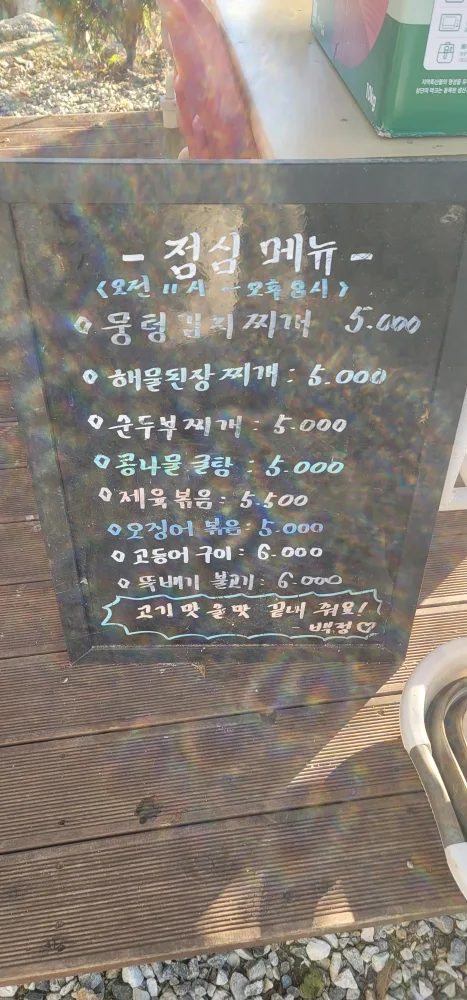 10kg
- 점심 메뉴 -
<오전 11시 - 오후 8시>
◇ 뭉텅 김치찌개 5.000
◇ 해물된장찌개 : 5.000
◇ 순두부찌개 : 5.000
◇ 콩나물 굴탕 : 5.000
◇ 제육볶음 : 5.500
◇ 오징어 볶음 : 5.000
◇ 고등어 구이 : 6.000
◇ 뚝배기 불고기 : 6.000
고기 맛 물 맛 끝내 줘요!
- 백정♡